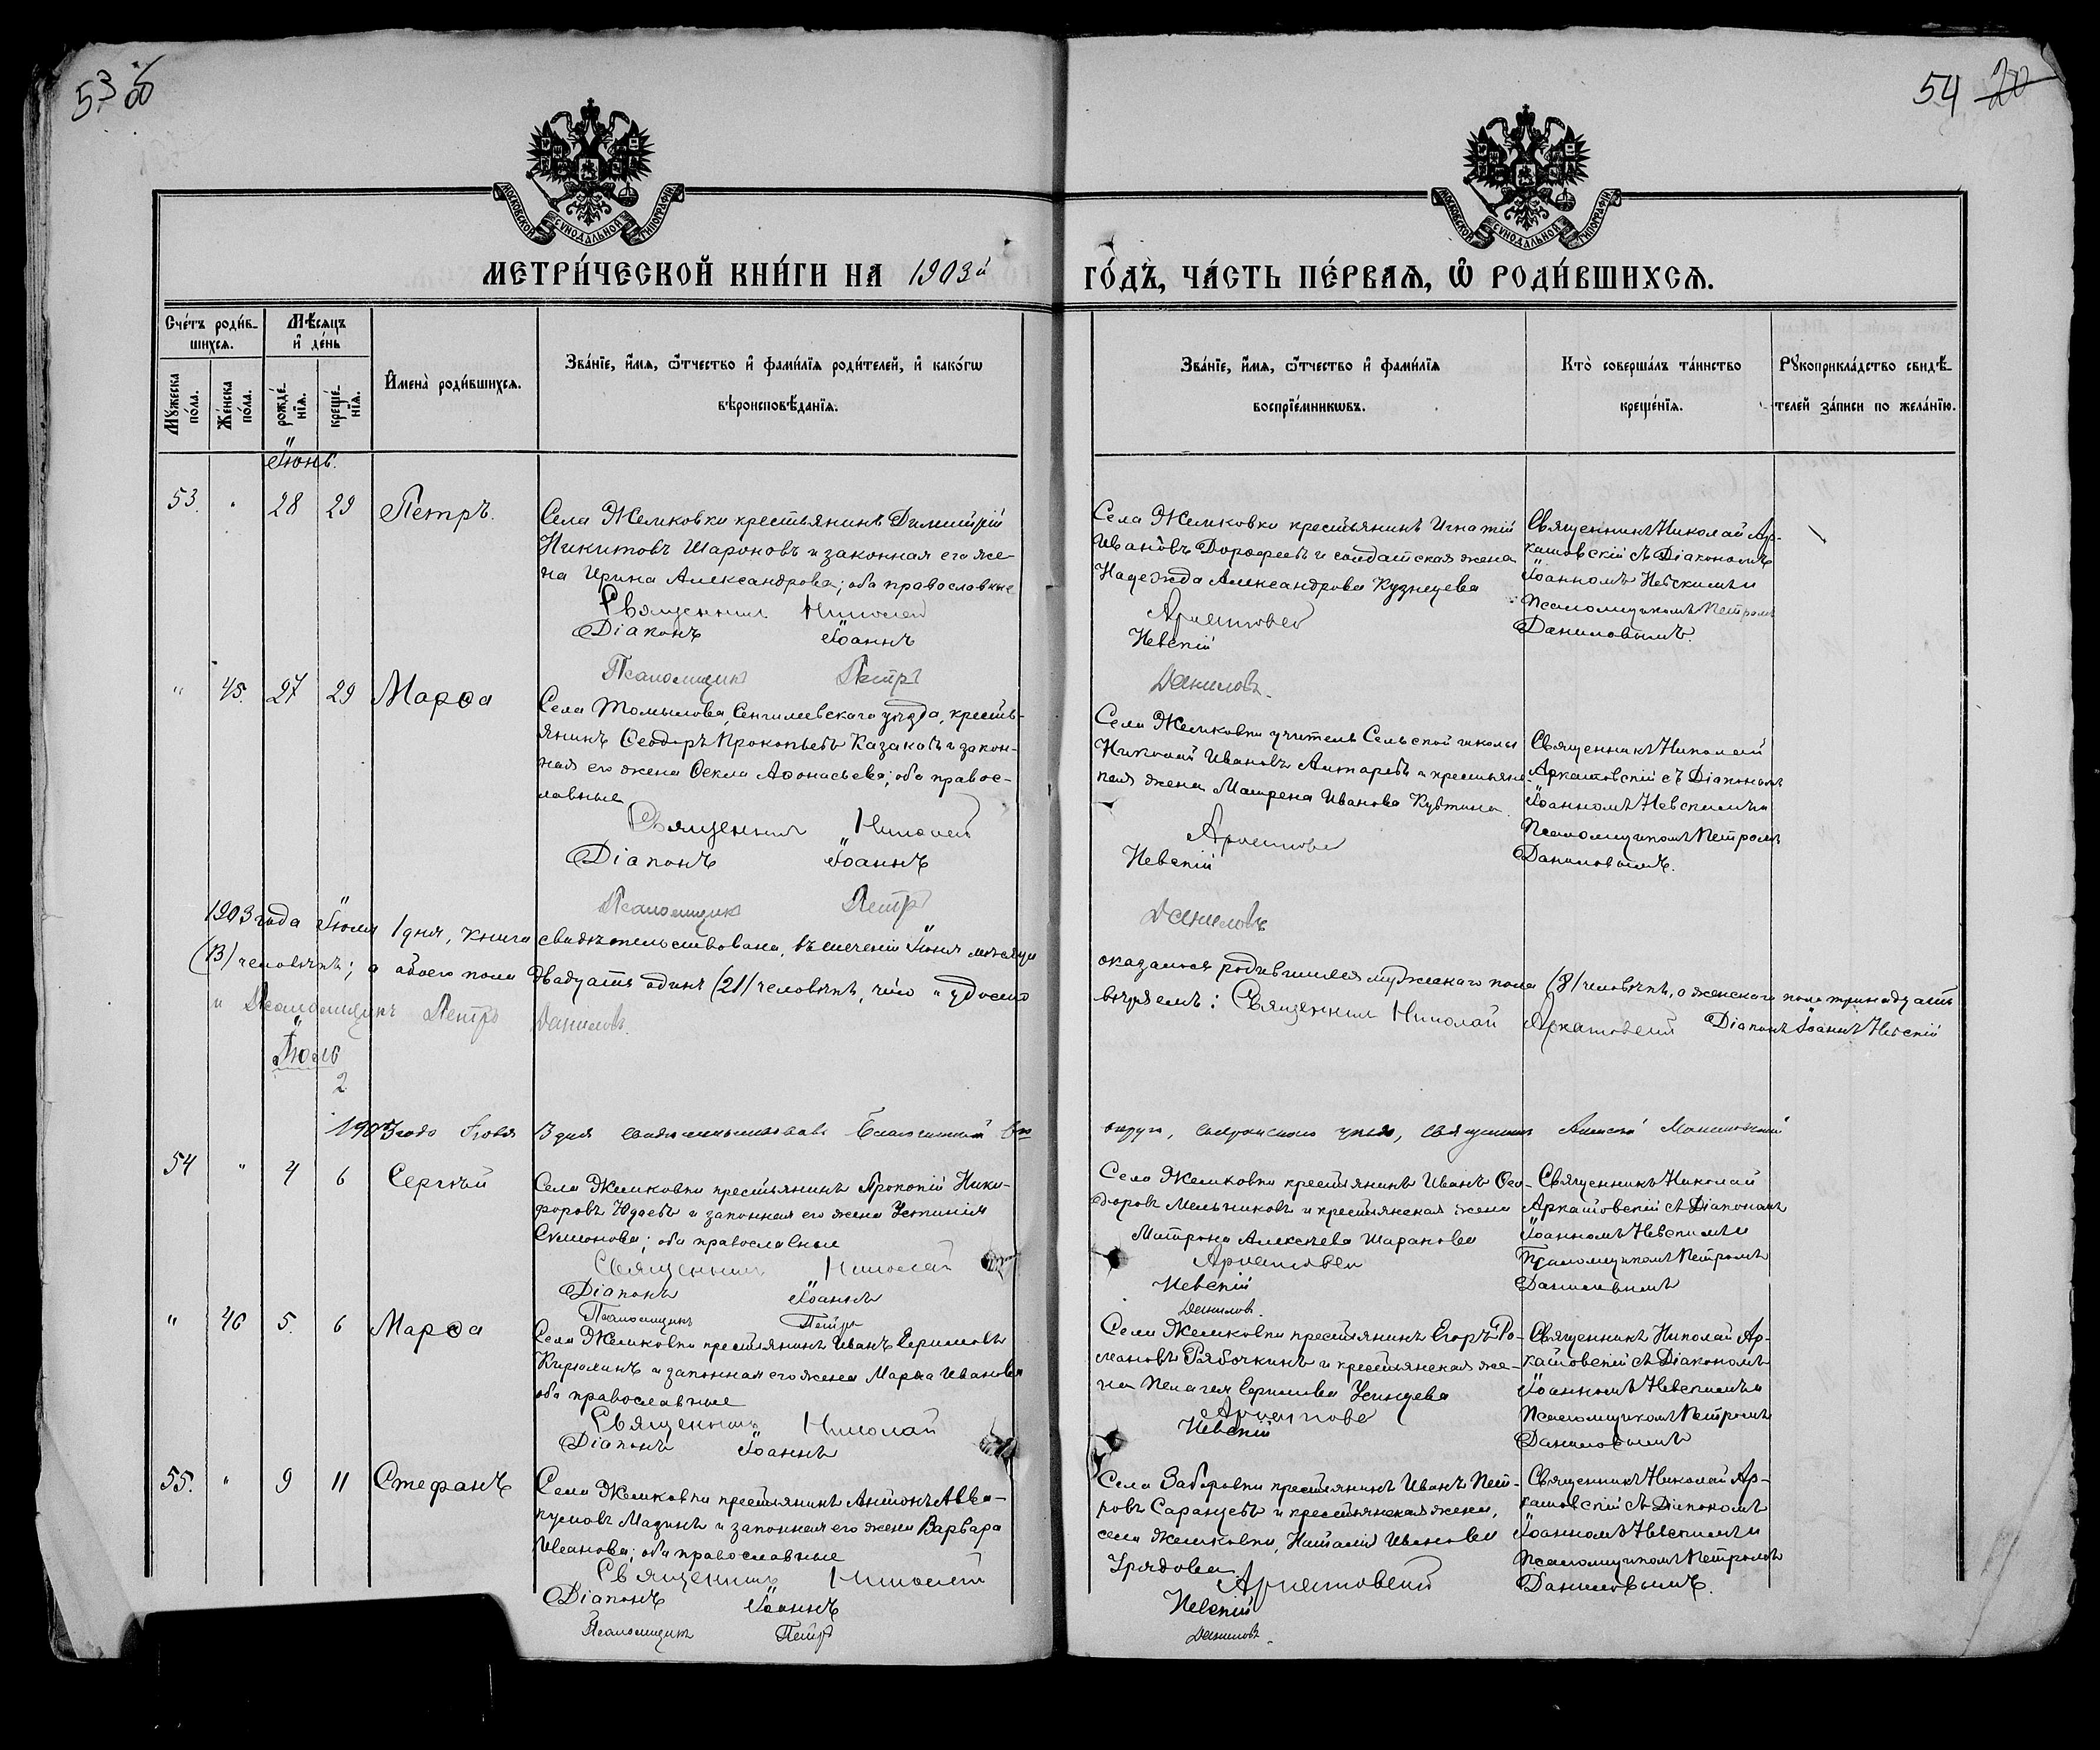 53 об
54 20
МОСКОВСКОЙ СѴНОДАЛЬНОЙ ТИПОГРАФІИ
МОСКОВСКОЙ СѴНОДАЛЬНОЙ ТИПОГРАФІИ
МЕТРИ́ЧЕСКОЙ КНИ́ГИ НА 1903й
ГО́ДЪ, ЧА́СТЬ ПЕ́РВАѦ, Ѡ РОДИ́ВШИХСѦ.
Сче́тъ роди́в-
шихсѧ.
Мѣ́сѧцъ
и҆ де́нь
Мꙋжеска по́ла.
Же́нска по́ла.
рожде́-
нїѧ.
креще́-
нїѧ.
И҆мена̀ роди́вшихсѧ.
Зва́нїе, и҆́мѧ, ѻ҆́тчество и҆ фами́лїѧ роди́телей, и҆ како́гѡ
вѣроисповѣ́данїѧ.
Зва́нїе, и҆́мѧ, ѻ҆́тчество и҆ фами́лїѧ
воспрїе́мникѡвъ.
Кто̀ соверша́лъ та́инство
креще́нїѧ.
Рꙋкоприкла́дство свидѣ́-
телей за́писи по жела́нїю.
Іюнь.
53. " 28 29 Петръ.
Села Жемковки крестьянинъ Димитрій
Никитовъ Шароновъ и законная его же-
на Ирина Александрова; оба православные
Священникъ Николай
Діаконъ Іоаннъ
Псаломщикъ Петръ
Села Жемковки крестьянинъ Игнатій
Ивановъ Дорофеевъ и солдатская жена
Надежда Александрова Кузнецова
Аркатовскій
Невскій
Даниловъ.
Священникъ Николай Ар-
катовскій съ Діакономъ
Іоанномъ Невскимъ и
Псаломщикомъ Петромъ
Даниловымъ.
" 45. 27 29 Марѳа
Села Томылова, Сенгилеевскаго уѣзда, кресть-
янинъ Ѳеодоръ Прокопьевъ Казаковъ и закон-
ная его жена Ѳекла Аѳонасьева; оба правос-
лавные
Священникъ Николай
Діаконъ Іоаннъ
Псаломщикъ Петръ
Села Жемковки учитель Сельской школы
Николай Ивановъ и крестьянс-
кая жена Матрена Иванова
Аркатовскій
Невскій
Даниловъ
Священникъ Николай
Аркатовскій съ Діакономъ
Іоанномъ Невскимъ и
Псаломщикомъ Петромъ
Даниловымъ.
1903 года Іюля 1 дня, книга свидѣтельствована, въ теченіи Іюня мѣсяца
оказалось родившихся мужескаго пола (8) человѣкъ, а женскаго пола тринадцать
(13) человѣкъ; а обоего пола двадцать одинъ (21) человѣкъ, что и удосто
вѣряемъ: Священникъ Николай Аркатовскій Діаконъ Іоаннъ Невскій
и Псаломщикъ Петръ Даниловъ.
Іюль
2
1903 года 3 дня свидѣтельствовалъ Благочинный
округа, Сызранскаго уѣзда, священникъ
54 " 4 6 Сергѣй
Села Жемковки крестьянинъ Прокопій Ники-
форовъ Юдаевъ и законная его жена Устинія
Симонова; оба православные
Священникъ Николай
Діаконъ Іоаннъ
Псаломщикъ Петръ
Села Жемковки крестьянинъ Иванъ Ѳео-
доровъ Мельниковъ и крестьянская жена
Матрона Алексѣева Шаранова
Аркатовскій
Невскій
Даниловъ.
Священникъ Николай
Аркатовскій съ Діакономъ
Іоанномъ Невскимъ и
Псаломщикомъ Петромъ
Даниловымъ
" 46 5. 6 Марѳа
Села Жемковки крестьянинъ Иванъ Ефимовъ
Кирюхинъ и законная его жена Марѳа Иванова
оба православные
Священникъ Николай
Діаконъ Іоаннъ
Села Жемковки крестьянинъ Егоръ Ро-
мановъ Рябочкинъ и крестьянская же-
на Пелагея Ефимова
Аркатовс
Невскій
Священникъ Николай Ар-
катовскій съ Діакономъ
Іоанномъ Невскимъ и
Псаломщикомъ Петромъ
Даниловымъ
55. " 9 11 Стефанъ
Села Жемковки крестьянинъ Антонъ Авва-
кумовъ Мазинъ и законная его жена Варвара
Иванова; оба православные
Священникъ Николай
Діаконъ Іоаннъ
Псаломщикъ Петръ
Села Заборовки крестьянинъ Иванъ Пет-
ровъ Саранцевъ и крестьянская жена,
села Жемковки, Наталія Иванова
Урядова.
Аркатовскій
Невскій
Даниловъ.
Священникъ Николай Ар-
катовскій съ Діакономъ
Іоанномъ Невскимъ и
Псаломщикомъ Петромъ
Даниловымъ.